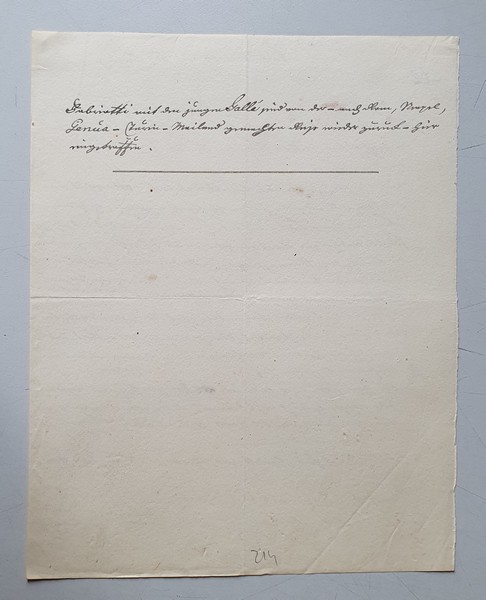 Fabiretti mit dem jungen Gallé, sind von der - nach Rom, Neapel,
Genua - Turin - Mailand gemachten Reise wieder zurück - hier
eingetroffen.
214